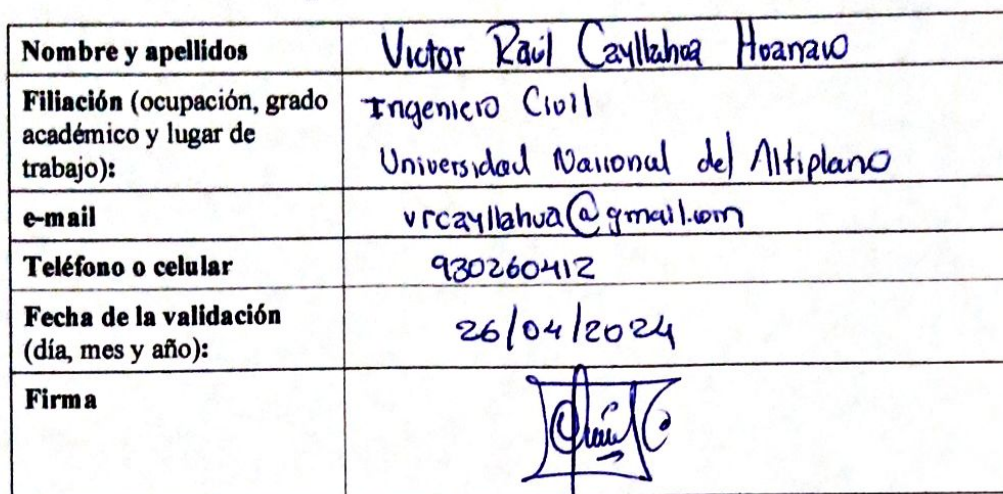 Nombre y apellidos
Victor Raúl Cayllahua Huanavo
Filiación (ocupación, grado
académico y lugar de
trabajo):
Ingeniero Civil
Universidad Nacional del Altiplano
e-mail
vrcayllahua@gmail.com
Teléfono o celular
930260412
Fecha de la validación
(día, mes y año):
26/04/2024
Firma